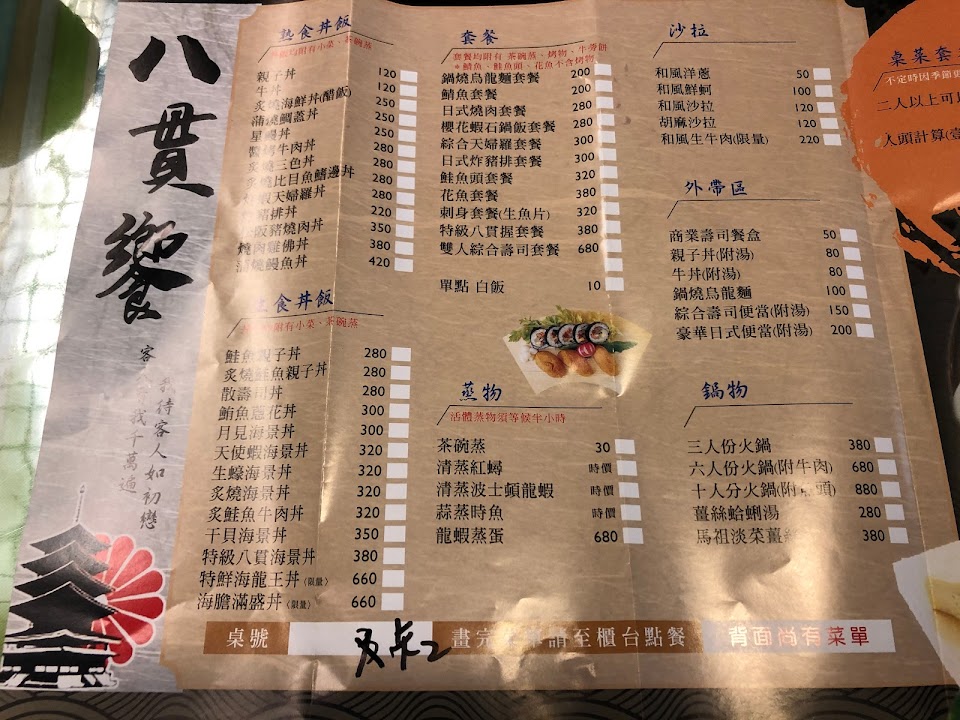 八貫饗
客 我
我待客人如初戀
我千萬遍
熟食丼飯
均附有小菜、茶碗蒸
親子丼 120
牛丼 120
炙燒海鮮丼(醋飯) 250
蒲燒鯛蓋丼 250
星鰻丼 250
牛肉丼 280
炙燒三色丼 280
燒比目魚鰭邊丼 280
蝦天婦羅丼 280
豬排丼 220
阪豬燒肉丼 350
燒肉 佛丼 380
蒲燒鰻魚丼 420
食丼飯
附有小菜、茶碗蒸
鮭魚親子丼 280
炙燒鮭魚親子丼 280
散壽司丼 280
鮪魚蔥花丼 300
月見海景丼 300
天使蝦海景丼 320
生蠔海景丼 320
炙燒海景丼 320
炙鮭魚牛肉丼 320
干貝海景丼 350
特級八貫海景丼 380
特鮮海龍王丼〈限量〉 660
海膽滿盛丼〈限量〉 660
套餐
套餐均附有 茶碗蒸、烤物、牛蒡餅
*鯖魚、鮭魚頭、花魚不含烤物
鍋燒烏龍麵套餐 200
鯖魚套餐 200
日式燒肉套餐 280
櫻花蝦石鍋飯套餐 280
綜合天婦羅套餐 300
日式炸豬排套餐 300
鮭魚頭套餐 320
花魚套餐 380
刺身套餐(生魚片) 320
特級八貫握套餐 380
雙人綜合壽司套餐 680
單點 白飯 10
蒸物
活體蒸物須等候半小時
茶碗蒸 30
清蒸紅蟳 時價
清蒸波士頓龍蝦 時價
蒜蒸時魚 時價
龍蝦蒸蛋 680
沙拉
和風洋蔥 50
和風鮮蚵 100
和風沙拉 120
胡麻沙拉 120
和風生牛肉(限量) 220
外帶區
商業壽司餐盒 50
親子丼(附湯) 80
牛丼(附湯) 80
鍋燒烏龍麵 100
綜合壽司便當(附湯) 150
豪華日式便當(附湯) 200
鍋物
三人份火鍋 380
六人份火鍋(附牛肉) 680
十人分火鍋(附 頭) 880
薑絲蛤蜊湯 280
馬祖淡菜薑絲 380
桌菜套
不定時因季節更
二人以上可
人頭計算(壹
桌號
畫完 請至櫃台點餐
背面尚有菜單